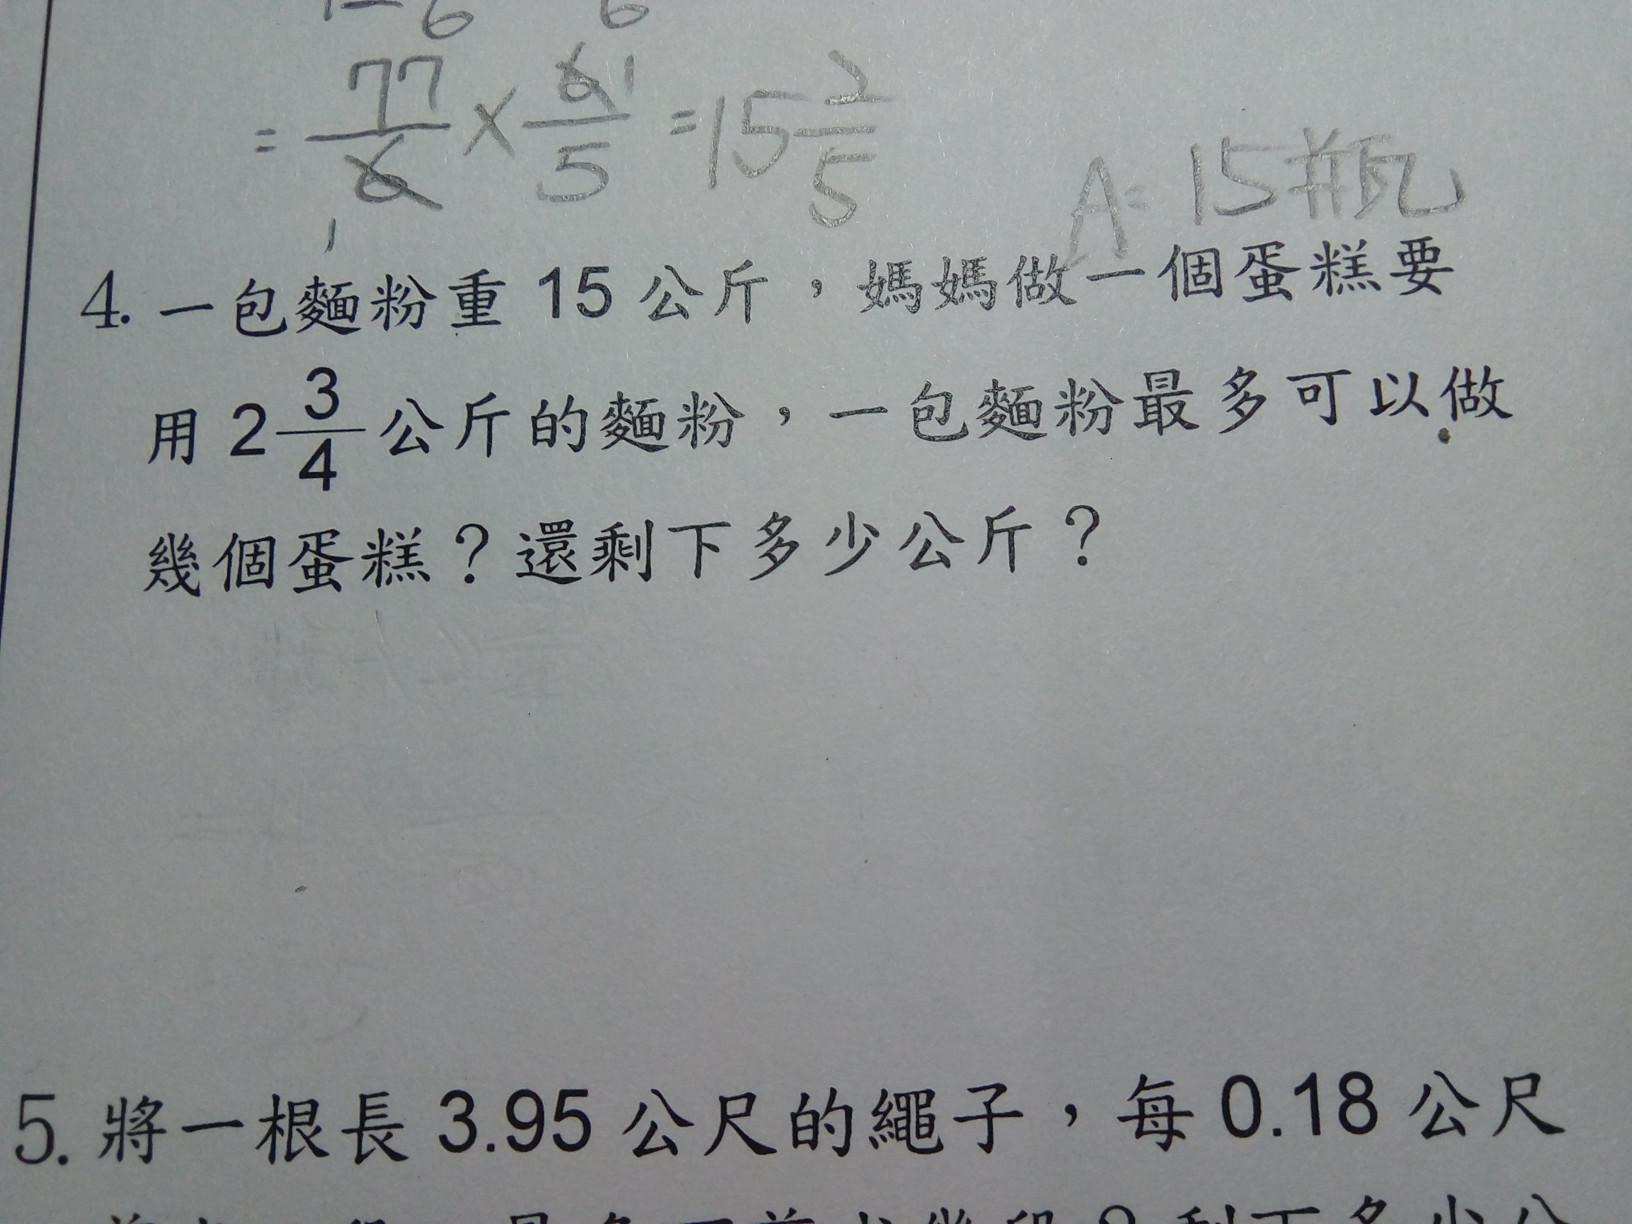 = 77/6 × 6/5 = 15 2/5
1 1
A: 15瓶
4. 一包麵粉重 15 公斤，媽媽做一個蛋糕要
用 2 3/4 公斤的麵粉，一包麵粉最多可以做
幾個蛋糕？還剩下多少公斤？
5. 將一根長 3.95 公尺的繩子，每 0.18 公尺